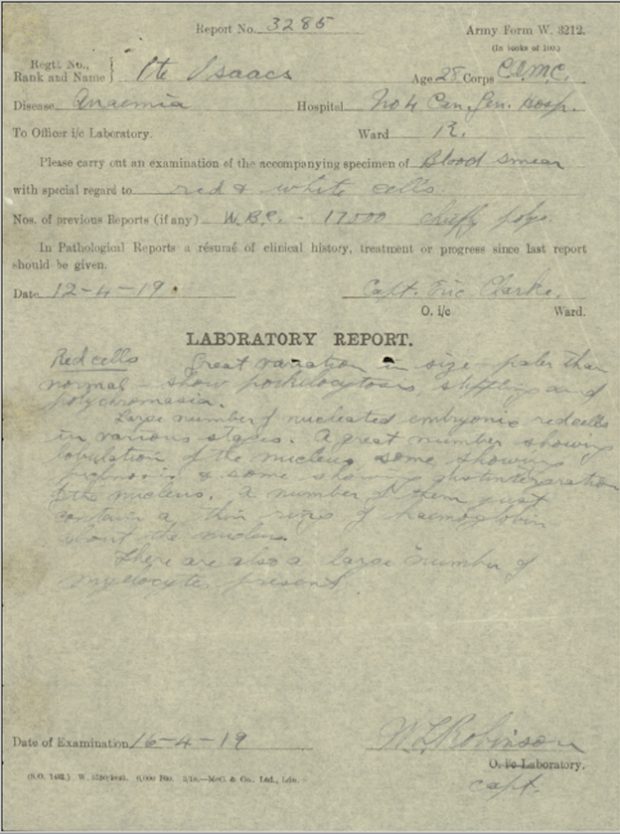 Report No. 3285
Army Form W. 3212.
(In books of 100.)
Regtl. No.,
Rank and Name } Pte Isaacs Age 28 Corps C.A.M.C.
Disease Anaemia Hospital No 4 Can. Gen. Hosp.
To Officer i/c Laboratory. Ward R.
Please carry out an examination of the accompanying specimen of Blood smear
with special regard to red & white cells
Nos. of previous Reports (if any) W.B.C. - 17000 chiefly polys.
In Pathological Reports a résumé of clinical history, treatment or progress since last report
should be given.
Date 12-4-19. Capt. Eric Clarke.
O. i/c Ward.
LABORATORY REPORT.
Red cells Great variation in size - paler than
normal - show poikilocytosis stippling and
polychromasia.
Large number of nucleated embryonic red cells
in various stages. A great number showing
lobulation of the nucleus some showing
& some showing disintegration
of the nucleus. A number of them just
contain a thin ring of haemoglobin
about the nucleus.
There are also a large number of
myelocytes present.
Date of Examination 16-4-19 W L Robinson
O. i/c Laboratory.
Capt.